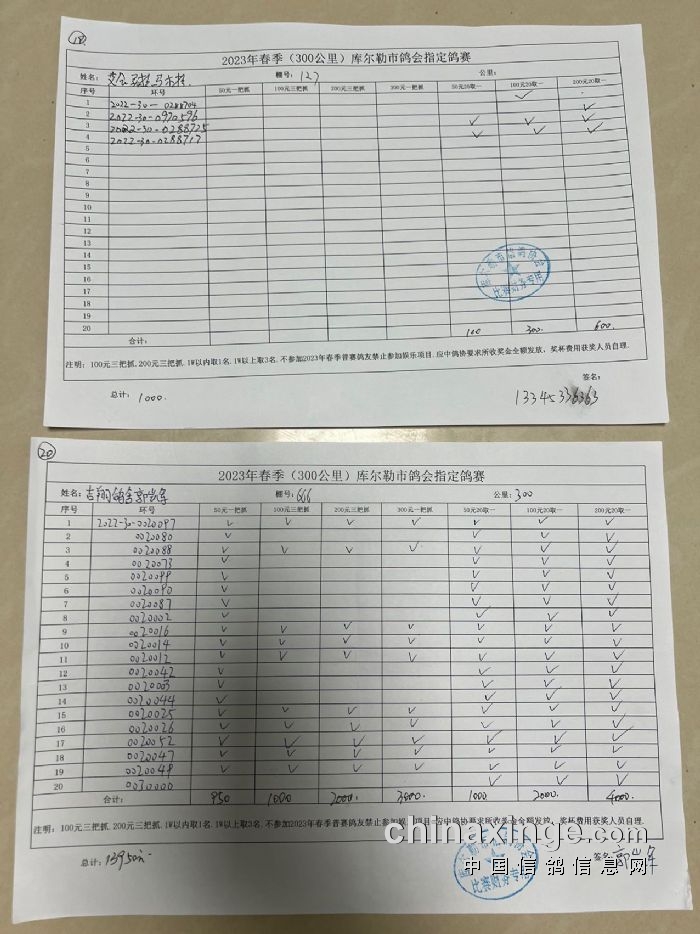 18
2023年春季（300公里）库尔勒市鸽会指定鸽赛
姓名： 棚号：127 公里：
序号 环号 50元一把抓 100元三把抓 200元三把抓 300元一把抓 50元20取一 100元20取一 200元20取一
1 2022-30-0288704 ✓
2 2022-30-0970596 ✓
3 2022-30-0288725 ✓ ✓ ✓
4 2022-30-0288717 ✓ ✓ ✓
5
6
7
8
9
10
11
12
13
14
15
16
17
18
19
20
合计： 100 300 600
比赛财务专用
注明：100元三把抓,200元三把抓,1W以内取1名,1W以上取3名,不参加2023年春季普赛鸽友禁止参加娱乐项目,应中鸽协要求所收奖金全额发放，奖杯费用获奖人员自理.
签名：
总计：1000. 13345336363
20
2023年春季（300公里）库尔勒市鸽会指定鸽赛
姓名：吉翔鸽舍郭 军 棚号：666 公里：300
序号 环号 50元一把抓 100元三把抓 200元三把抓 300元一把抓 50元20取一 100元20取一 200元20取一
1 2022-30-0020097 ✓ ✓ ✓ ✓ ✓ ✓ ✓
2 0020080 ✓ ✓ ✓ ✓
3 0020088 ✓ ✓ ✓ ✓ ✓ ✓ ✓
4 0020073 ✓ ✓ ✓ ✓
5 0020099 ✓ ✓ ✓ ✓
6 0020090 ✓ ✓ ✓ ✓
7 0020087 ✓ ✓ ✓ ✓
8 0020002 ✓ ✓ ✓ ✓
9 0020016 ✓ ✓ ✓ ✓ ✓ ✓ ✓
10 0020014 ✓ ✓ ✓ ✓ ✓ ✓ ✓
11 0020012 ✓ ✓ ✓ ✓ ✓ ✓ ✓
12 0020042 ✓ ✓ ✓ ✓
13 0020003 ✓ ✓ ✓ ✓
14 0020044 ✓ ✓ ✓ ✓
15 0020025 ✓ ✓ ✓ ✓ ✓ ✓ ✓
16 0020026 ✓ ✓ ✓ ✓ ✓ ✓ ✓
17 0020052 ✓ ✓ ✓ ✓ ✓ ✓ ✓
18 0020047 ✓ ✓ ✓ ✓ ✓ ✓ ✓
19 0020049 ✓ ✓ ✓ ✓ ✓ ✓ ✓
20 0030000 ✓ ✓ ✓
合计： 950 1000 2000 3000 1000 2000 4000
注明：100元三把抓,200元三把抓,1W以内取1名,1W以上取3名,不参加2023年春季普赛鸽友禁止参加娱乐项目,应中鸽协要求所收奖金全额发放，奖杯费用获奖人员自理.
chinaxinge.com
总计：13950元. 签名：郭 军
比赛财务专用
中国信鸽信息网